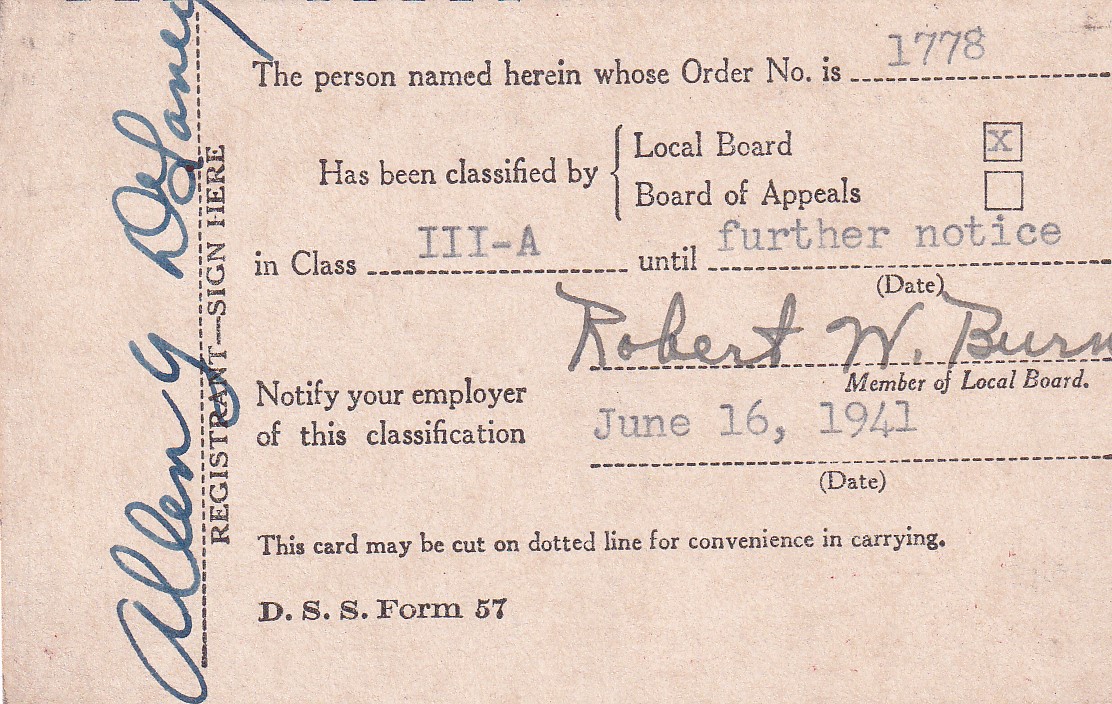 The person named herein whose Order No. is 1778
Has been classified by { Local Board X
Board of Appeals
in Class III-A until further notice
(Date)
Robert W. Burn
Member of Local Board.
Notify your employer
of this classification
June 16, 1941
(Date)
This card may be cut on dotted line for convenience in carrying.
D. S. S. Form 57
REGISTRANT—SIGN HERE
Allen y DeLaney